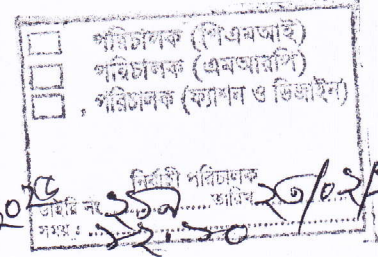 পরিচালক (পিএমআই)
পরিচালক (এমআরপি)
পরিচালক (ফ্যাশন ও ডিজাইন)
নির্বাহী পরিচালক
ডায়রি নং ২১৭ তারিখ ২৩/০২/২০২৫
সময়: ১২.১০